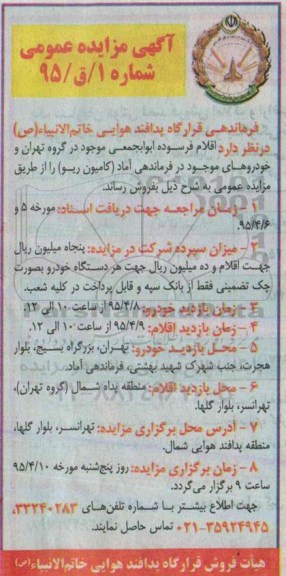 آگهی مزایده عمومی
شماره ۱/ق/۹۵
فرماندهی قرارگاه پدافند هوایی خاتم‌الانبیاء(ص)
درنظر دارد اقلام فرسوده ابوابجمعی موجود در گروه تهران و
خودروهای موجود در فرماندهی آماد (کامیون ریو) را از طریق
مزایده عمومی به شرح ذیل بفروش رساند.
۱ – زمان مراجعه جهت دریافت اسناد: مورخه ۵ و
۹۵/۴/۶.
۲ – میزان سپرده شرکت در مزایده: پنجاه میلیون ریال
جهت اقلام و ده میلیون ریال جهت هر دستگاه خودرو بصورت
چک تضمینی فقط از بانک سپه و قابل پرداخت در کلیه شعب.
۳ – زمان بازدید خودرو: ۹۵/۴/۸ از ساعت ۱۰ الی ۱۲.
۴ – زمان بازدید اقلام: ۹۵/۴/۹ از ساعت ۱۰ الی ۱۲.
۵ – محل بازدید خودرو: تهران، بزرگراه بسیج، بلوار
هجرت، جنب شهرک شهید بهشتی، فرماندهی آماد.
۶ – محل بازدید اقلام: منطقه پداه شمال (گروه تهران)،
تهرانسر، بلوار گلها.
۷ – آدرس محل برگزاری مزایده: تهرانسر، بلوار گلها،
منطقه پدافند هوایی شمال.
۸ – زمان برگزاری مزایده: روز پنج‌شنبه مورخه ۹۵/۴/۱۰
ساعت ۹ برگزار می‌گردد.
جهت اطلاع بیشتر با شماره تلفن‌های ۳۳۲۴۰۲۸۳،
۰۲۱-۳۵۹۲۴۹۴۵ تماس حاصل نمایند.
هیأت فروش قرارگاه پدافند هوایی خاتم‌الانبیاء(ص)